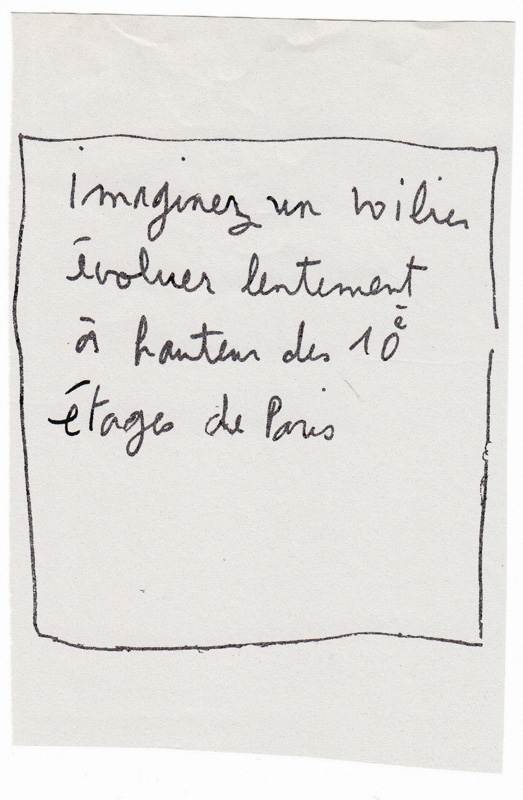 imaginez un voilier
évoluer lentement
à hauteur des 10è
étages de Paris